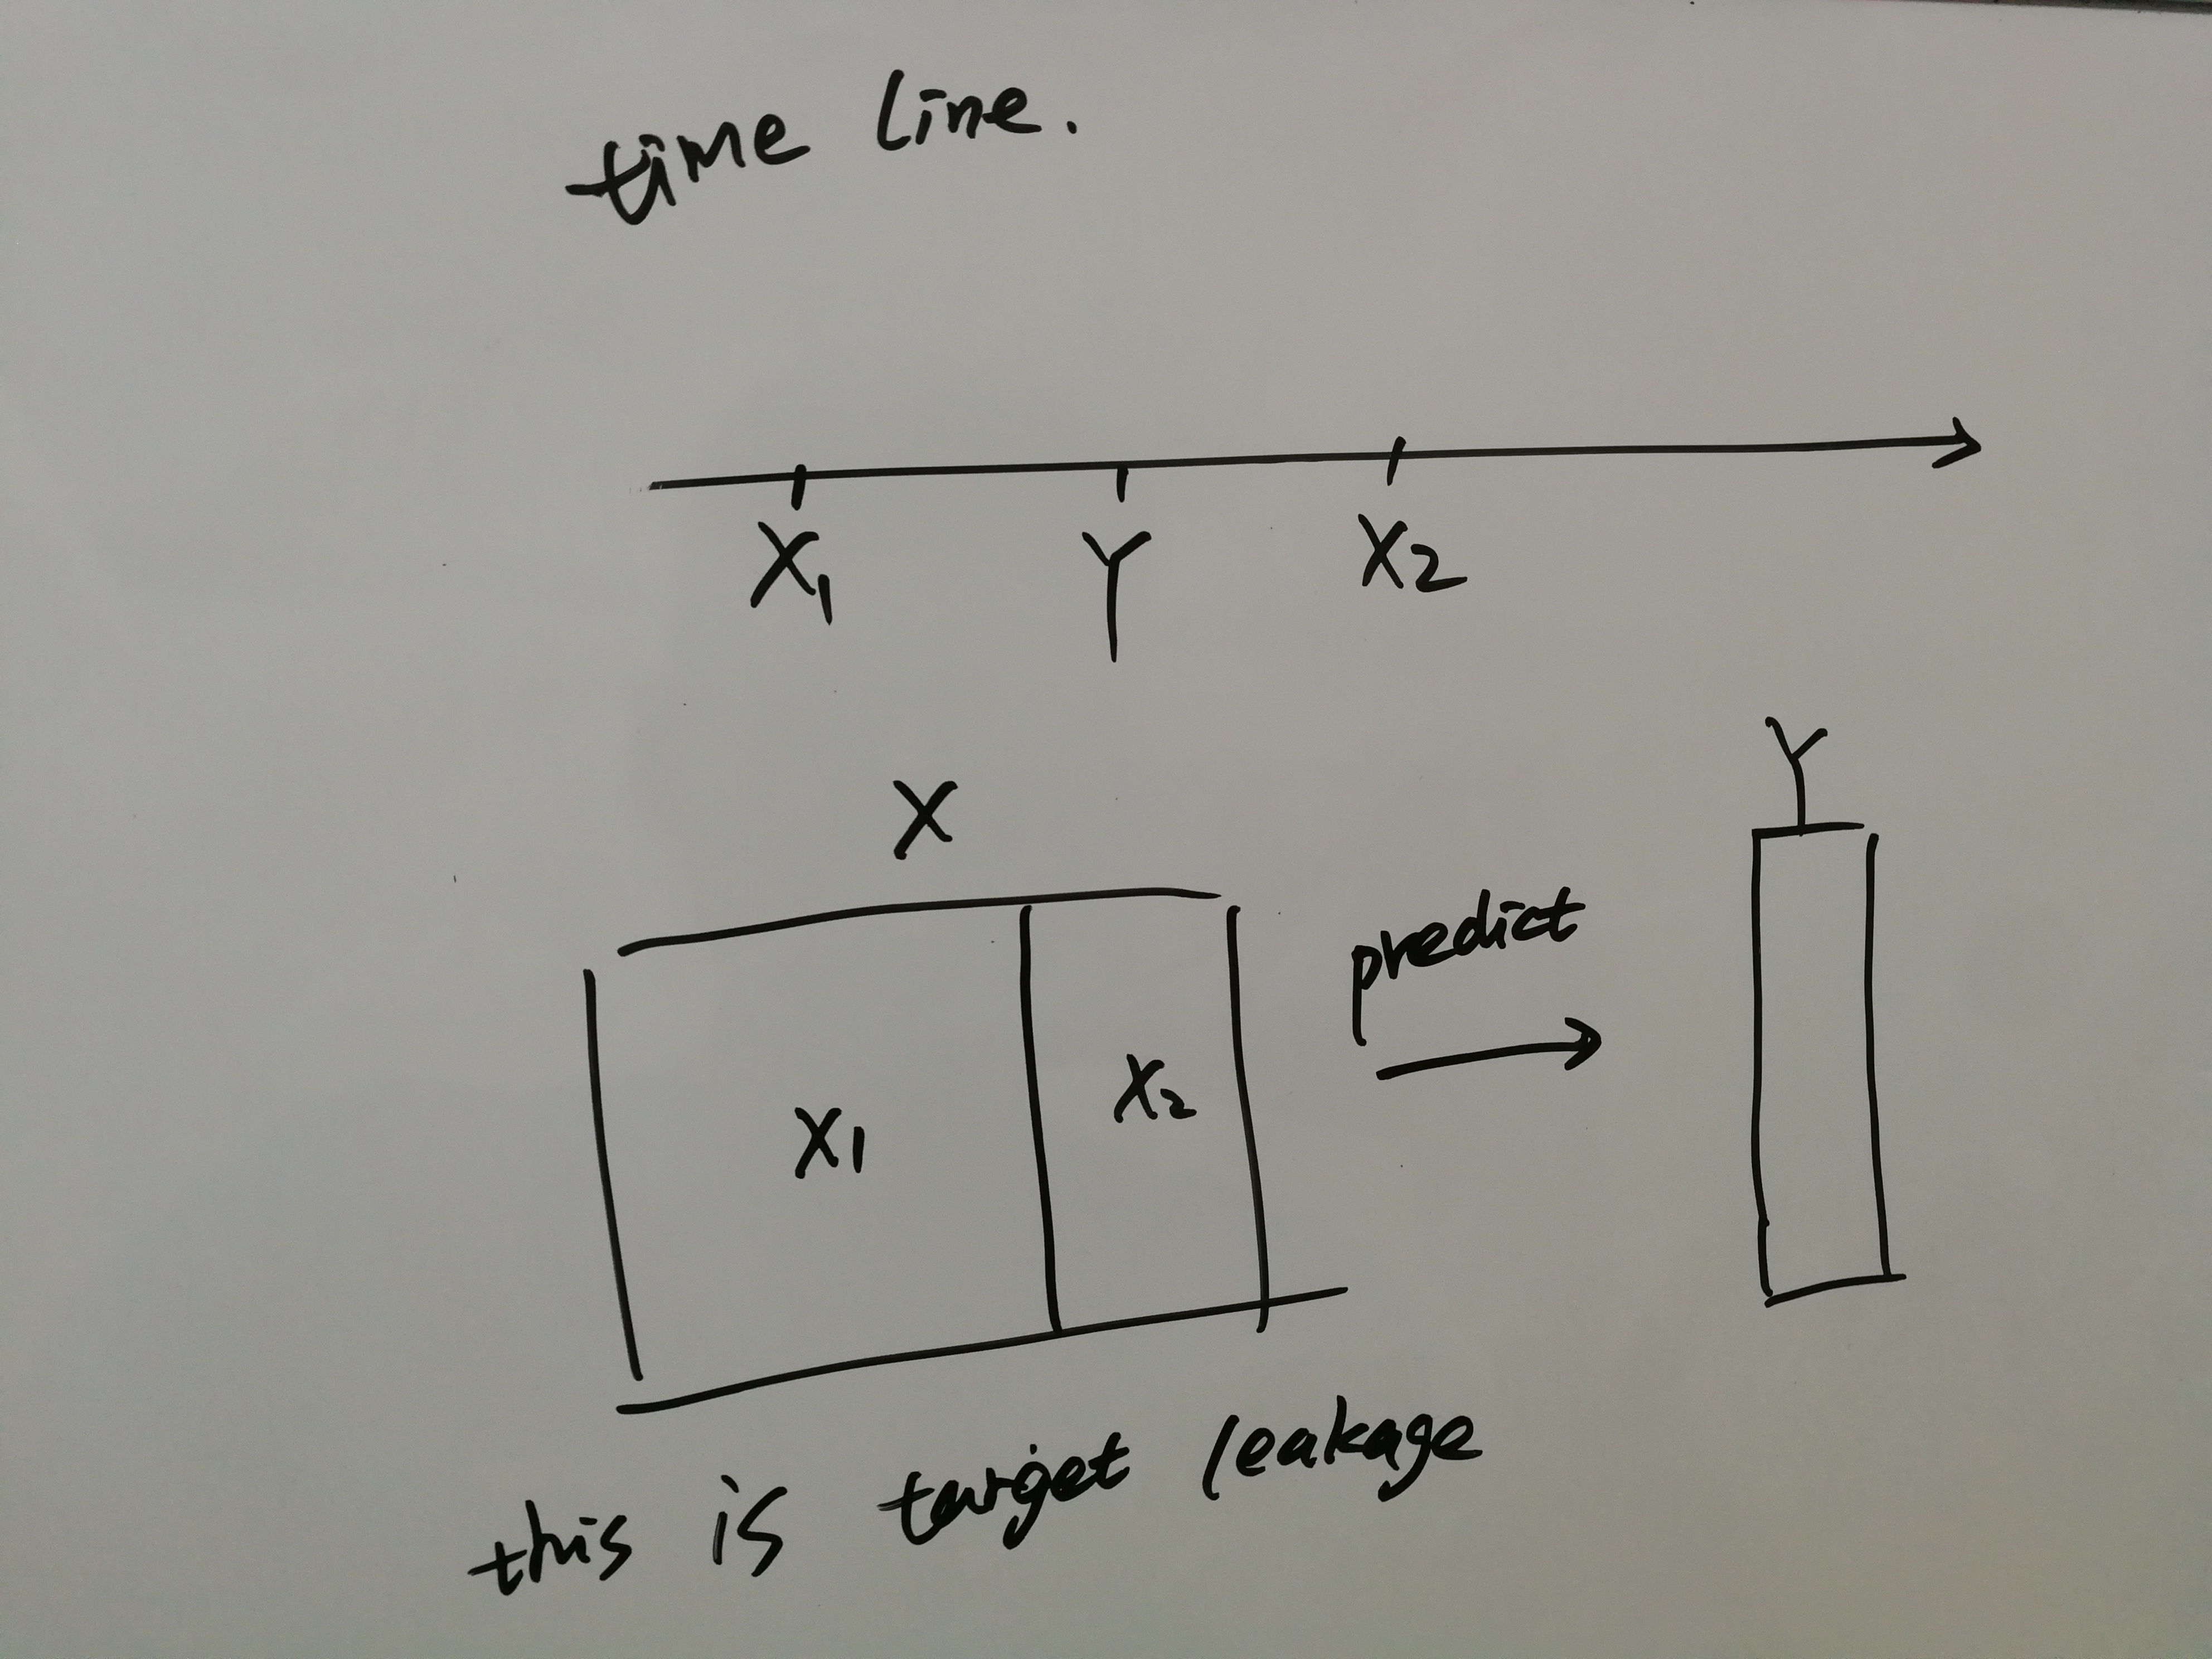 time line.
X1 Y X2
Y
X
predict
X1 X2
this is target leakage